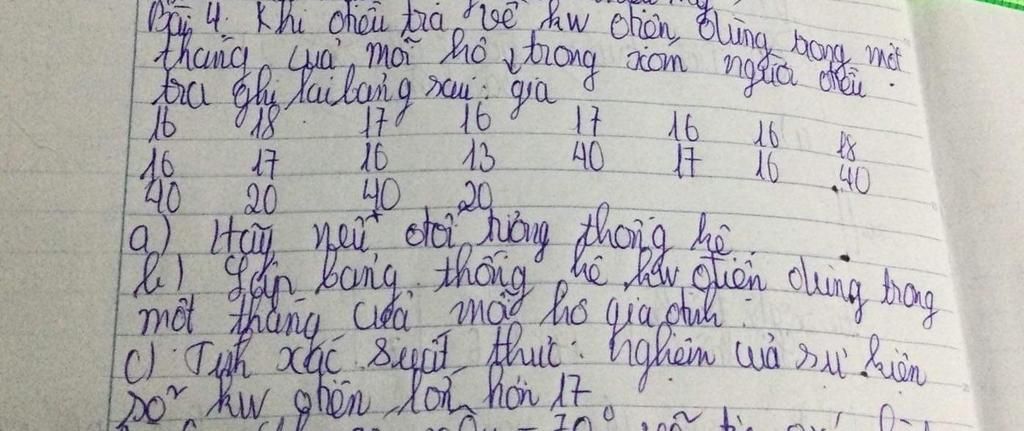 Bài 4. Khi điều tra về kw điện dùng trong một
tháng của mỗi hộ trong xóm người điều
tra ghi lại bảng sau: gia
16 18 17 16 17 16 16 18
16 17 16 13 40 17 16 40
40 20 40 20
a) Hãy nêu đối tượng thống kê
b) Lập bảng thống kê kw điện dùng trong
một tháng của mỗi hộ gia đình.
c) Tính xác suất thực nghiệm của sự kiện
số kw điện lớn hơn 17